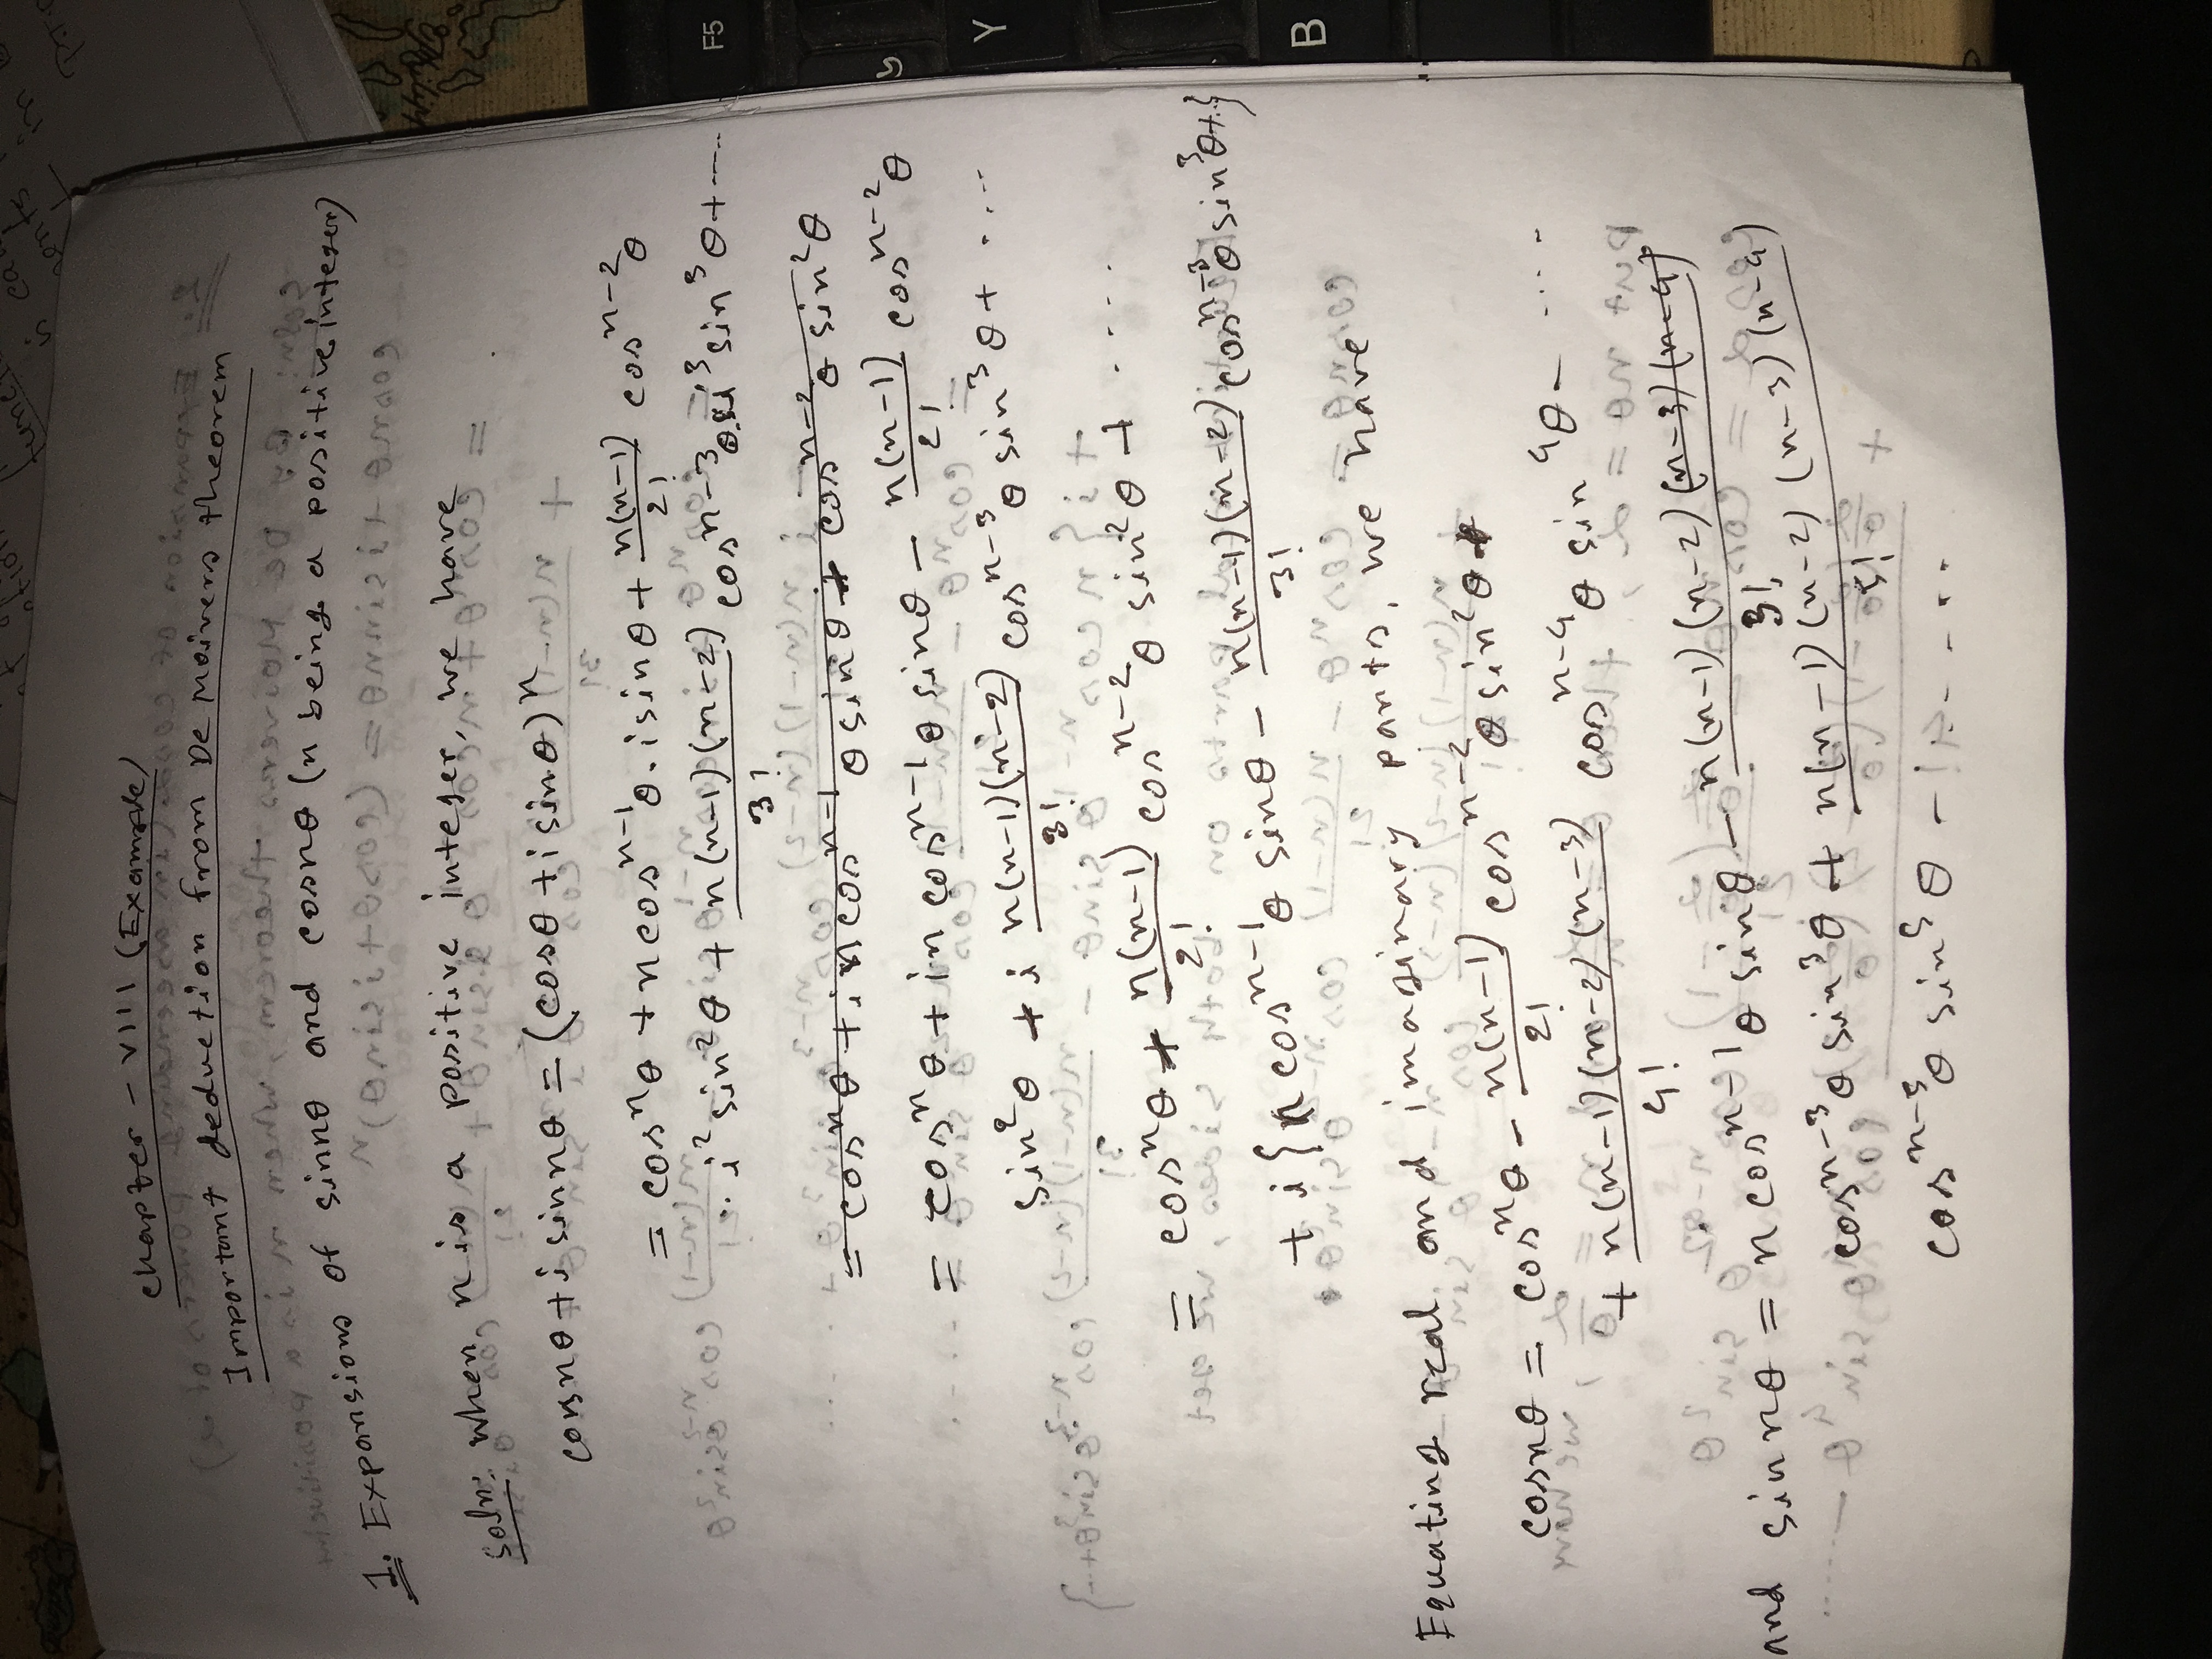 chapter - VIII (Example)
Important deduction from De Moivers theorem
1. Expansions of sinnθ and cosnθ (n being a positive integer)
Soln: when n is a positive integer, we have
cosnθ + i sinnθ = (cosθ + i sinθ)^n
= cos^n θ + n cos^{n-1} θ . i sinθ + n(n-1)/2! cos^{n-2} θ
. i^2 sin^2 θ + n(n-1)(n-2)/3! cos^{n-3} θ . i^3 sin^3 θ + ....
= cos^n θ + i n cos^{n-1} θ sinθ + cos^{n-2} θ sin^2 θ
= cos^n θ + i n cos^{n-1} θ sinθ - n(n-1)/2! cos^{n-2} θ
sin^2 θ + i n(n-1)(n-2)/3! cos^{n-3} θ sin^3 θ + ....
= cos^n θ + n(n-1)/2! cos^{n-2} θ sin^2 θ + ....
+ i { n cos^{n-1} θ sinθ - n(n-1)(n-2)/3! cos^{n-3} θ sin^3 θ + .. }
Equating real and imaginary parts, we have
cosnθ = cos^n θ - n(n-1)/2! cos^{n-2} θ sin^2 θ
+ n(n-1)(n-2)(n-3)/4! cos^{n-4} θ sin^4 θ - ....
and sinnθ = n cos^{n-1} θ sinθ - n(n-1)(n-2)(n-3)(n-4)/3!
cos^{n-3} θ sin^3 θ + n(n-1)(n-2)(n-3)(n-4)/5!
cos^{n-5} θ sin^5 θ - ....
F5
Y
B